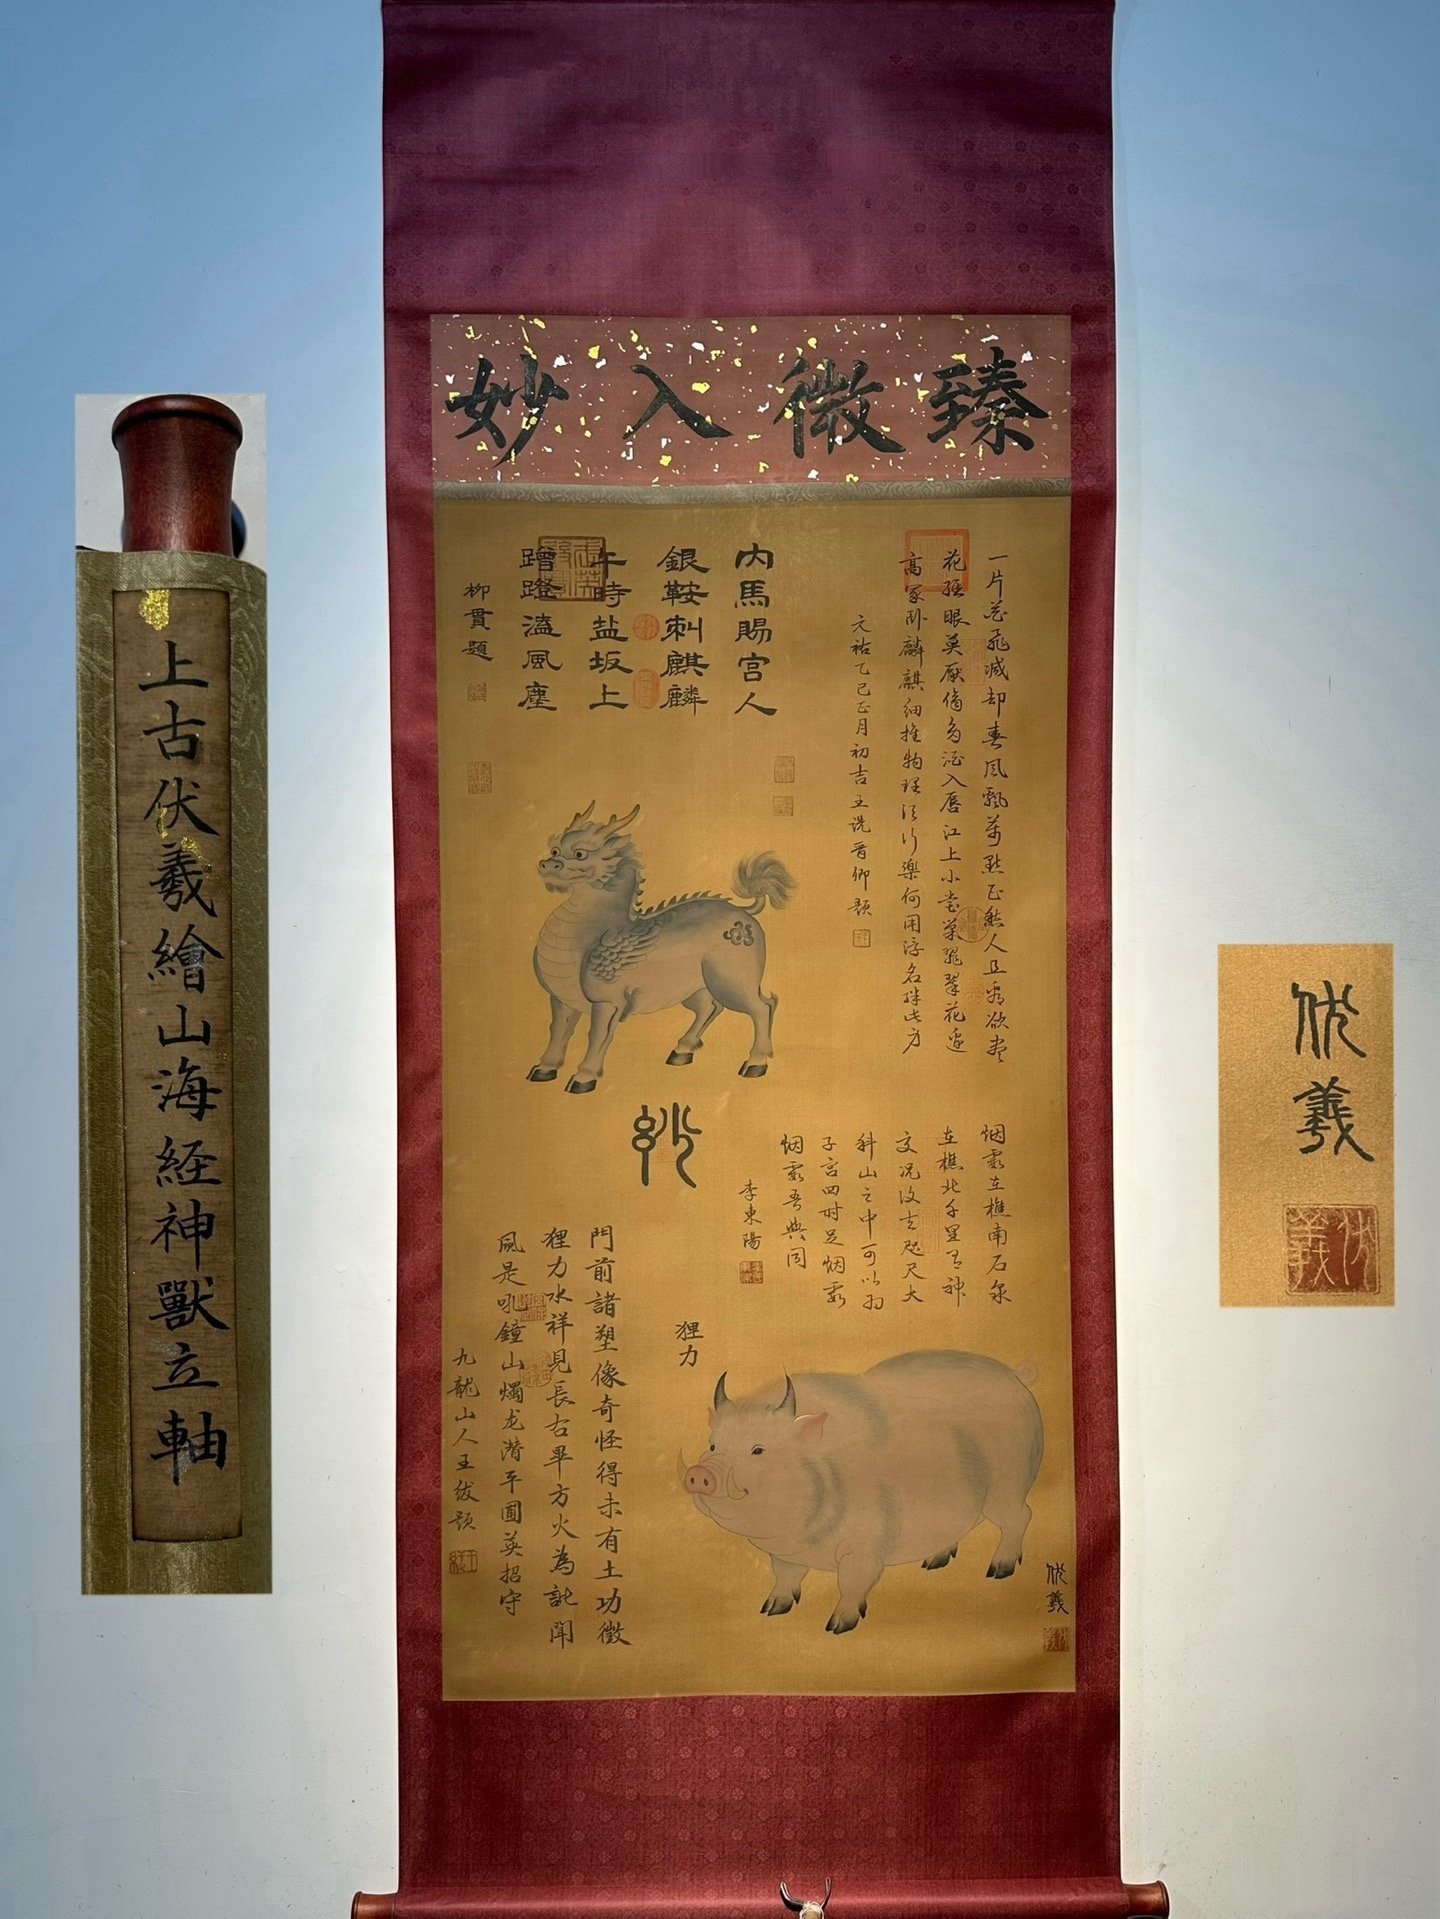 臻微入妙
上古伏羲繪山海経神獸立軸
一片花飛減却春風飄萬點正愁人且看欲盡
花經眼莫厭傷多酒入唇江上小堂巢翡翠花邊
高冢卧麟麒細推物理須行樂何用浮名絆此身
元祐乙巳正月初吉王詵晉卿題
內馬賜宮人
銀鞍刺麒麟
午時盐坂上
蹭蹬溘風塵
柳貫題
妙
烟霞在樵南石泉
在樵北千星有神
交況汝去咫尺大
科山之中可以為
子言四时足烟霞
烟霞吾與同
李東陽
狸力
門前諸塑像奇怪得未有土功徵
狸力水祥見長右畢方火為訛聞
夙是吼鐘山燭龙潛平圃英招守
九龍山人王紱题
伏羲
伏羲
伏羲
伏羲